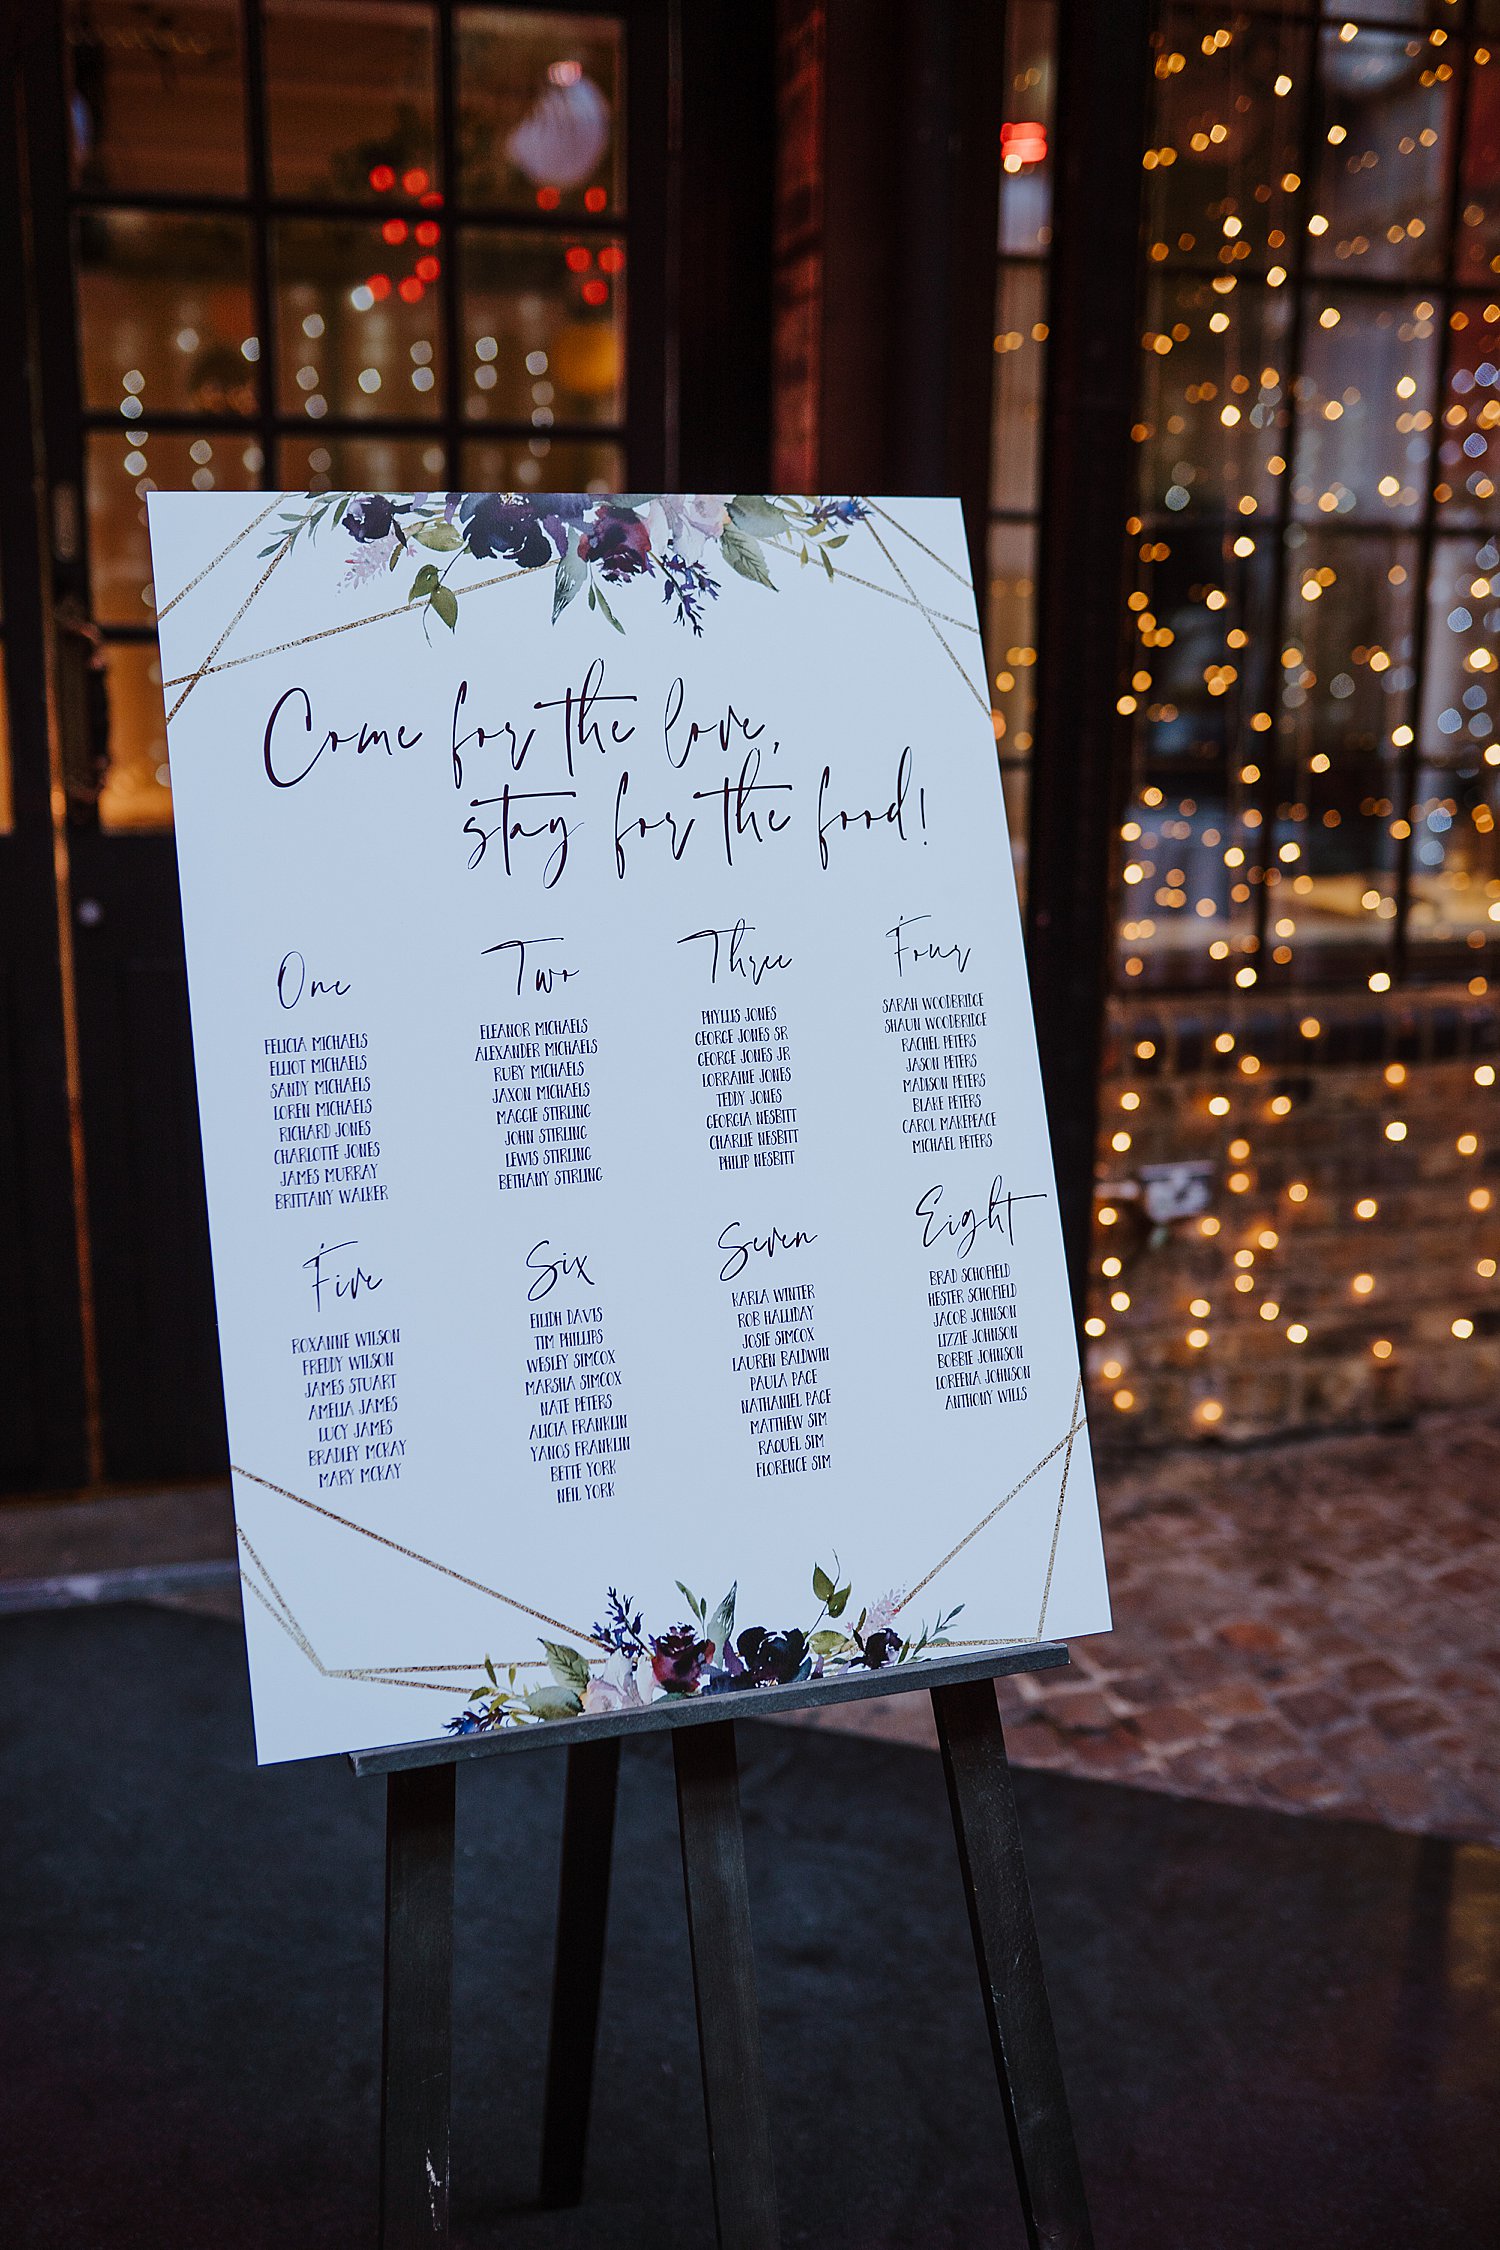 Come for the love,
stay for the food!
One
FELICIA MICHAELS
ELLIOT MICHAELS
SANDY MICHAELS
LOREN MICHAELS
RICHARD JONES
CHARLOTTE JONES
JAMES MURRAY
BRITTANY WALKER
Two
ELEANOR MICHAELS
ALEXANDER MICHAELS
RUBY MICHAELS
JAXON MICHAELS
MAGGIE STIRLING
JOHN STIRLING
LEWIS STIRLING
BETHANY STIRLING
Three
PHYLLIS JONES
GEORGE JONES SR
GEORGE JONES JR
LORRAINE JONES
TEDDY JONES
GEORGIA NESBITT
CHARLIE NESBITT
PHILIP NESBITT
Four
SARAH WOODBRIDGE
SHAUN WOODBRIDGE
RACHEL PETERS
JASON PETERS
MADISON PETERS
BLAKE PETERS
CAROL MAKEPEACE
MICHAEL PETERS
Five
ROXANNE WILSON
FREDDY WILSON
JAMES STUART
AMELIA JAMES
LUCY JAMES
BRADLEY MCKAY
MARY MCKAY
Six
EILIDH DAVIS
TIM PHILLIPS
WESLEY SIMCOX
MARSHA SIMCOX
NATE PETERS
ALICIA FRANKLIN
YANOS FRANKLIN
BETTE YORK
NEIL YORK
Seven
KARLA WINTER
ROB HALLIDAY
JOSIE SIMCOX
LAUREN BALDWIN
PAULA PAGE
NATHANIEL PAGE
MATTHEW SIM
RAQUEL SIM
FLORENCE SIM
Eight
BRAD SCHOFIELD
HESTER SCHOFIELD
JACOB JOHNSON
LIZZIE JOHNSON
BOBBIE JOHNSON
LOREENA JOHNSON
ANTHONY WILLS